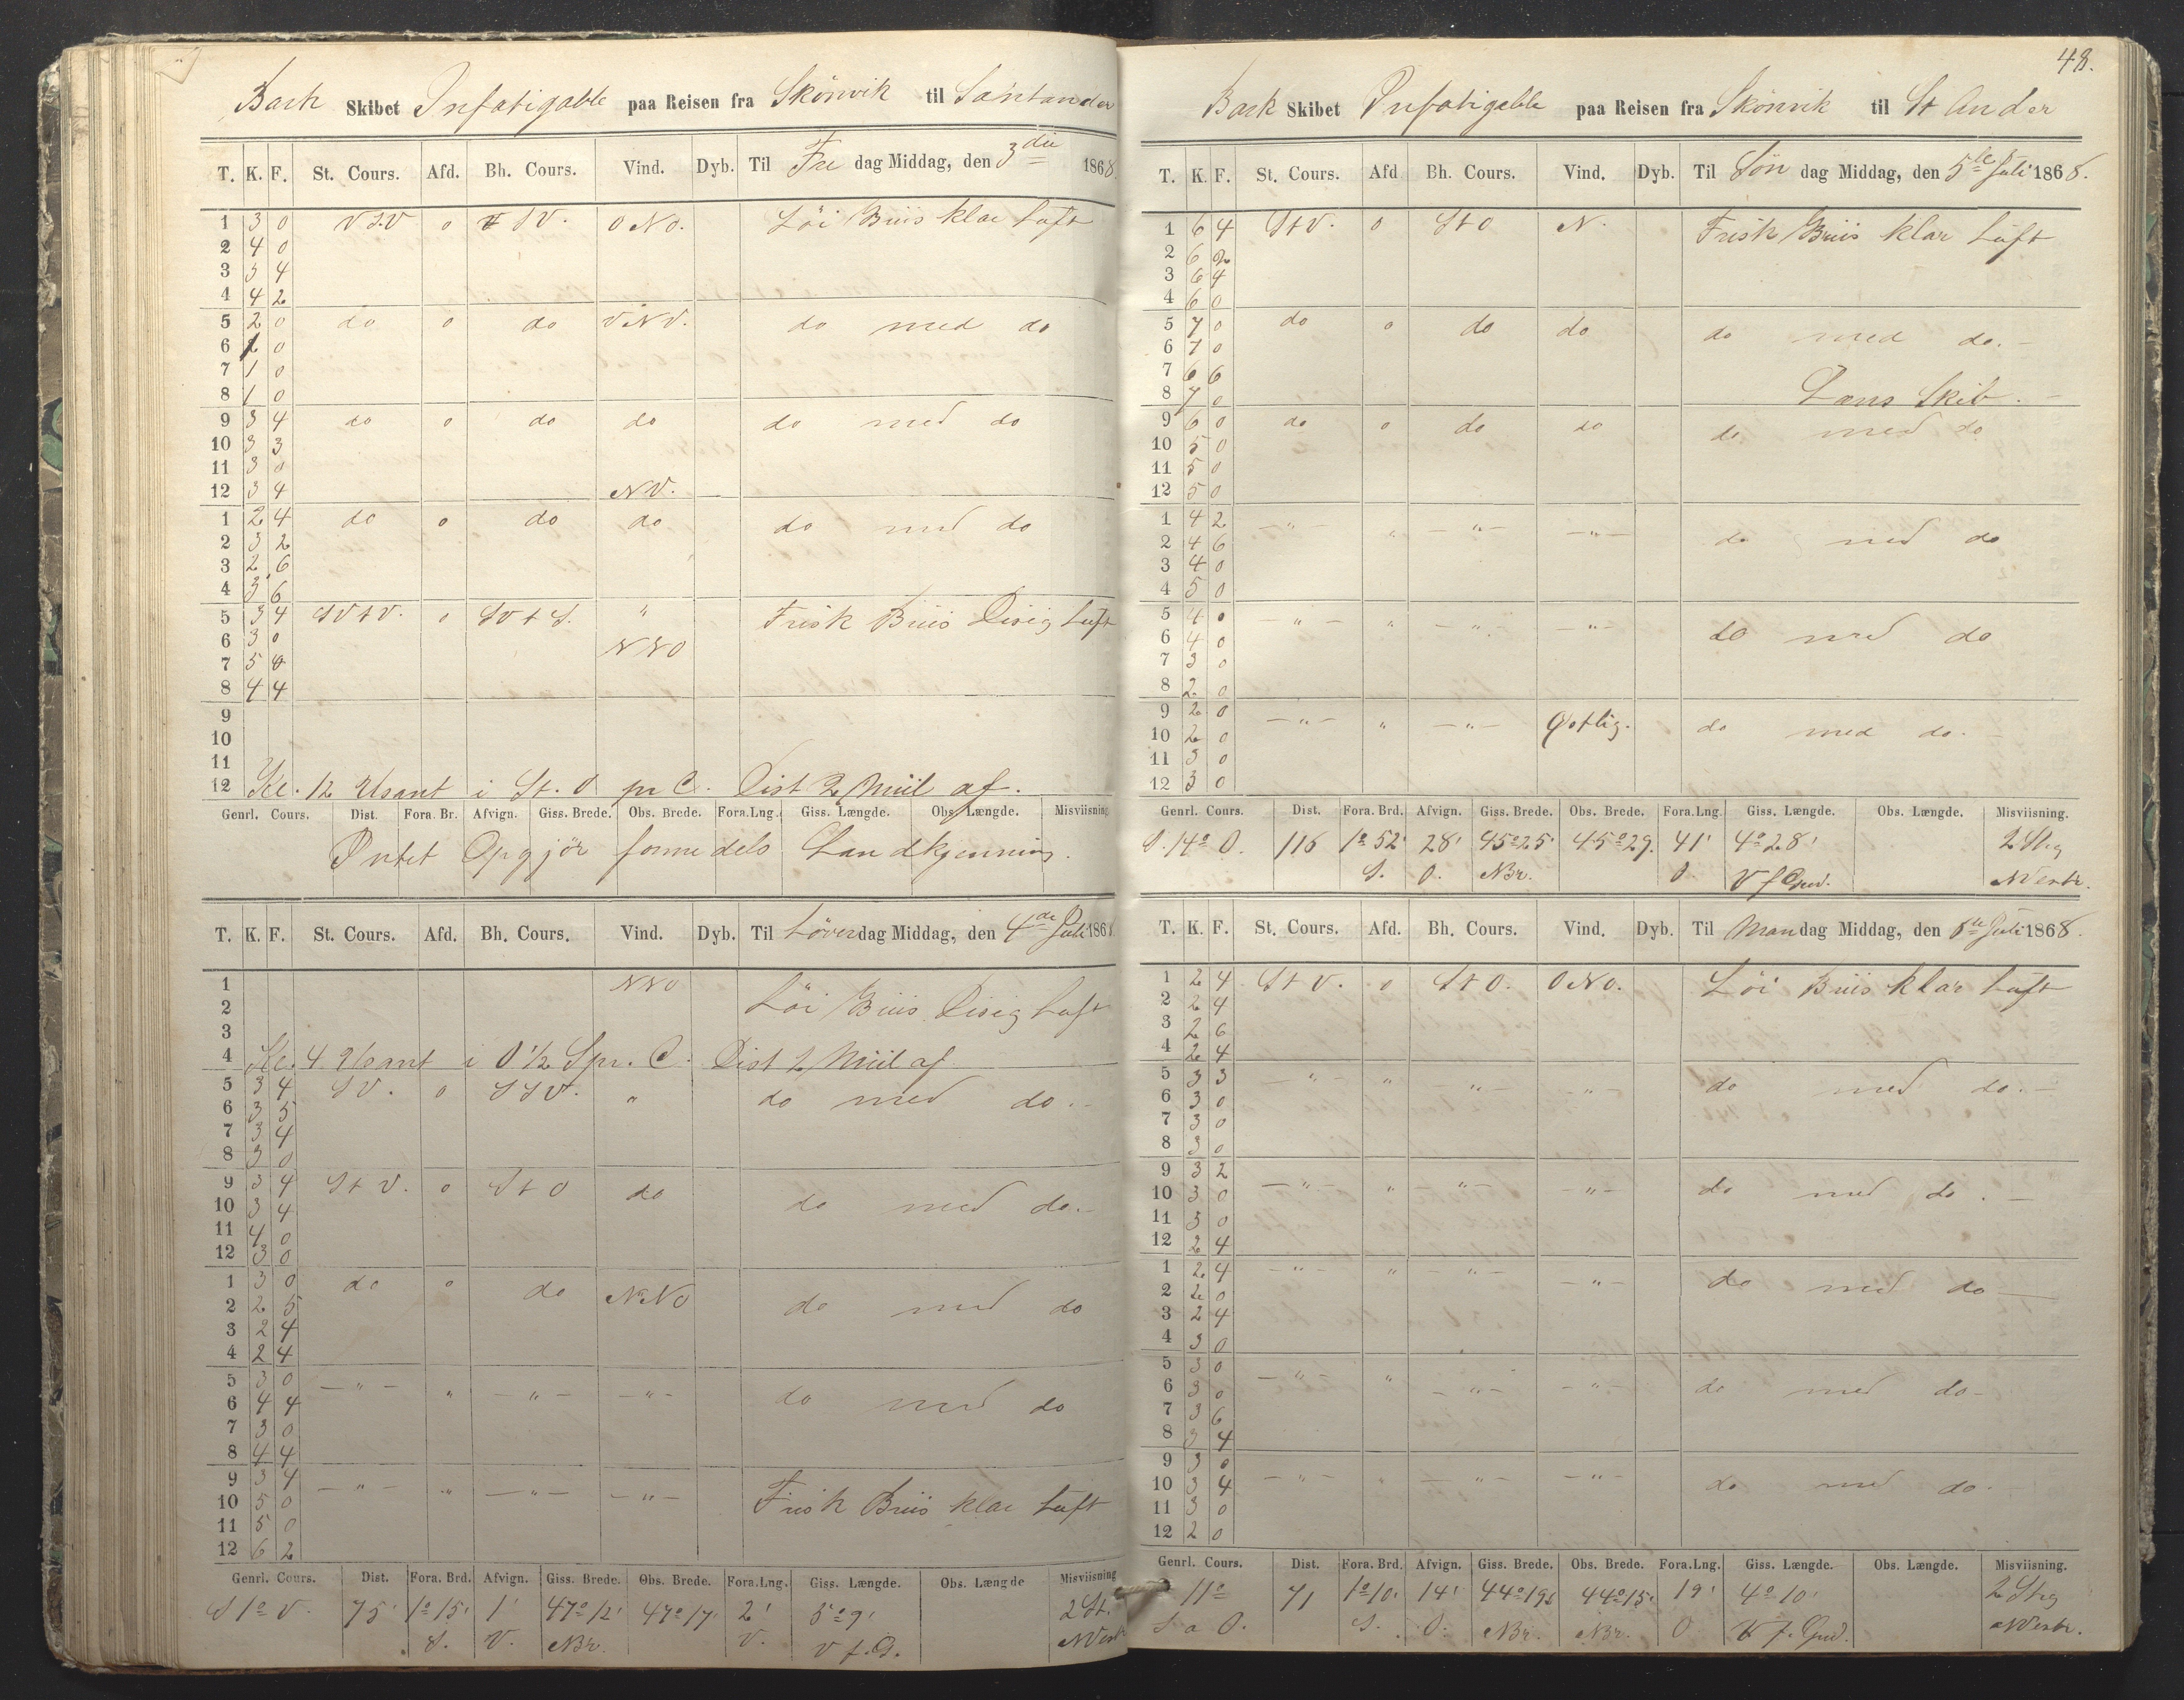 Bark Skibet Infatigable paa Reisen fra Skönvik til Santander
T. K. F. St. Cours. Afd. Bh. Cours. Vind. Dyb. Til Fre dag Middag, den 3die 1868.
1 3 0 VSV o VSV. ONO. Löi Briis klar Luft
2 4 0
3 3 4
4 4 2
5 2 0 do o do VNV. do med do
6 2 0
7 1 0
8 1 0
9 3 4 do o do do do med do
10 3 3
11 3 0
12 3 4 NV.
1 2 4 do o do do do med do
2 3 2
3 2 6
4 3 6
5 3 4 SVtV. o SVtS. " Frisk Briis Disig Luft
6 3 0 NNO
7 5 0
8 4 4
9
10
11
12 Kl. 12 Usant i St. O pr C. Dist 2 Miil af.
Genrl. Cours. Dist. Fora. Br. Afvign. Giss. Brede. Obs. Brede. Fora.Lng. Giss. Længde. Obs. Længde. Misviisning
Intet Opgjör formedels Landkjenning.
T. K. F. St. Cours. Afd. Bh. Cours. Vind. Dyb. Til Löverdag Middag, den 4de Juli 1868
1 NNO Löi Briis Disig Luft
2
3
4 Kl. 4 Usant i O 1/2 S pr. C. Dist 2 Miil af
5 3 4 SV. o SSV. " do med do.-
6 3 5
7 3 4
8 3 0
9 3 4 StV. o StO do do med do.-
10 3 4
11 4 0
12 3 0
1 3 0 do o do NNO do med do
2 2 5
3 2 4
4 2 4
5 3 0 -"- " -"- -"- do med do
6 4 4
7 3 0
8 4 4
9 3 4 -"- " -"- -"- Frisk Briis klar Luft
10 5 0
11 5 0
12 6 2
Genrl. Cours. Dist. Fora. Brd. Afvign. Giss. Brede. Obs. Brede. Fora.Lng. Giss. Længde. Obs. Længde Misviisning
S 1° V. 75' 1° 15' 1' 47° 12' 47° 17' 2' 5° 9' 2 St.
S. V. NBr. V. V f. G. NVestr
48.
Bark Skibet Infatigable paa Reisen fra Skönvik til St Ander
T. K. F. St. Cours. Afd Bh. Cours. Vind. Dyb. Til Søn dag Middag, den 5te Juli 1868.
1 6 4 StV. o StO N. Frisk Briis klar Luft
2 6 2
3 6 4
4 6 0
5 7 0 do o do do do med do.-
6 7 0
7 6 6
8 7 0 Læns Skib.-
9 6 0 do o do do do med do
10 5 0
11 5 0
12 5 0
1 4 2 -"- " -"- -"- do med do
2 4 6
3 4 0
4 5 0
5 4 0 -"- " -"- -"- do med do
6 4 0
7 3 0
8 2 0
9 2 0 -"- " -"- Østlig. do med do.-
10 2 0
11 3 0
12 3 0
Genrl. Cours. Dist. Fora. Brd. Afvign. Giss. Brede. Obs. Brede. Fora.Lng. Giss. Længde. Obs. Længde. Misviisning.
S. 14° O. 116 1° 52' 28' 45° 25' 45° 29. 41' 4° 28' 2 Streg
S. O. NBr. O V f Grnv. NVestr.
T. K. F. St. Cours. Afd. Bh. Cours. Vind. Dyb. Til Mandag Middag, den 6te Juli 1868.
1 2 4 StV. o StO. ONO. Löi Briis klar Luft
2 2 4
3 2 6
4 2 4
5 3 3 -"- " -"- -"- do med do.-
6 3 0
7 3 0
8 3 0
9 3 2 -"- " -"- -"- do med do.-
10 3 0
11 3 0
12 2 4
1 2 4 -"- " -"- -"- do med do-
2 2 0
3 2 4
4 3 0
5 3 0 -"- " -"- -"- do med do-
6 3 0
7 3 6
8 3 4
9 3 0 -"- " -"- -"- do med do.
10 3 4
11 3 0
12 2 0
Genrl. Cours. Dist. Fora. Brd. Afvign. Giss. Brede. Obs. Brede. Fora.Lng. Giss. Længde. Obs. Længde. Misviisning.
11° 71 1° 10' 14' 44° 19' 44° 15' 19' 4° 10' 2 Streg
S a O. S. O. NBr. NBr. O V f. Grnv. NVestr.